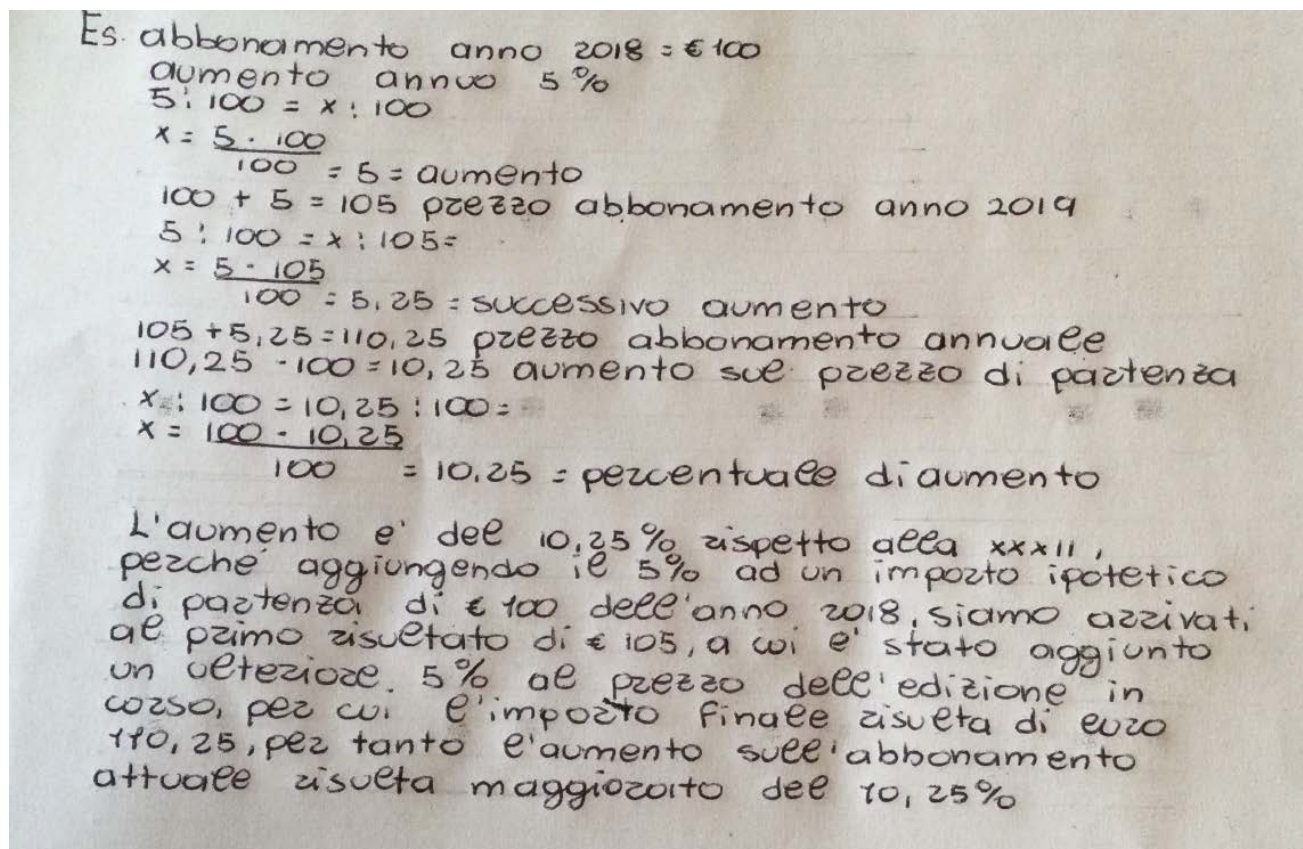 Es. abbonamento anno 2018 = € 100
aumento annuo 5 %
5 : 100 = x : 100
x = 5 · 100
100 = 5 = aumento
100 + 5 = 105 prezzo abbonamento anno 2019
5 : 100 = x : 105 =
x = 5 · 105
100 = 5,25 = successivo aumento
105 + 5,25 = 110,25 prezzo abbonamento annuale
110,25 - 100 = 10,25 aumento sul prezzo di partenza
x : 100 = 10,25 : 100 =
x = 100 · 10,25
100 = 10,25 = percentuale di aumento
L'aumento e' del 10,25 % rispetto alla xxxii,
perché aggiungendo il 5% ad un importo ipotetico
di partenza di € 100 dell'anno 2018, siamo arrivati
al primo risultato di € 105, a cui e' stato aggiunto
un ulteriore 5% al prezzo dell'edizione in
corso, per cui l'importo finale risulta di euro
110,25, per tanto l'aumento sull'abbonamento
attuale risulta maggiorato del 10,25%